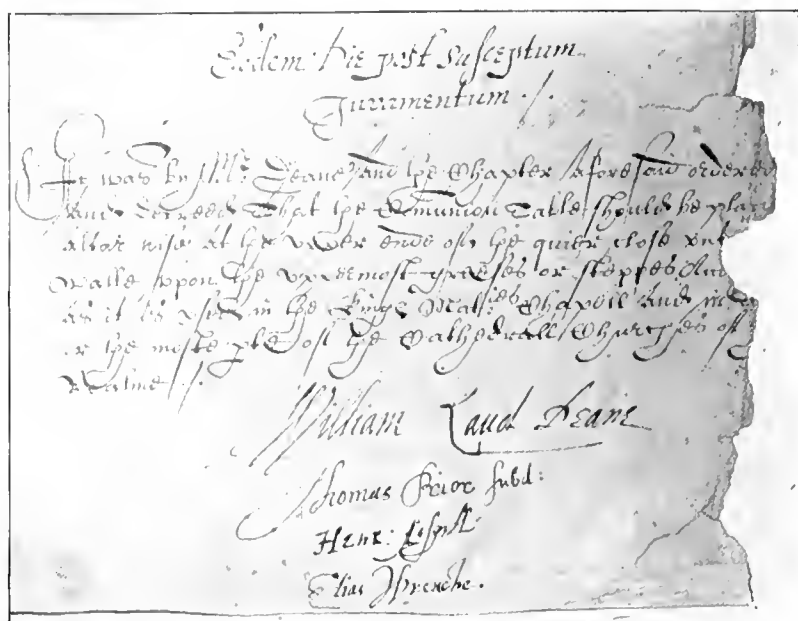 Eodem die post susceptum
Juramentum ./.
It was by Mr. Deane and the Chapter aforesaid ordered
and decreed That the Comunion Table should be plac
altar wise at the upper ende of the quier close unt
walle uppon the uppermost greeses or steppes And
as it is used in the Kings Maties Chapell And in
or the moste pte of the Cathedrall Churches of
Realme ./.
William Laud Deane
Thomas Prior subd:
Henr:
Elias Wrenche.